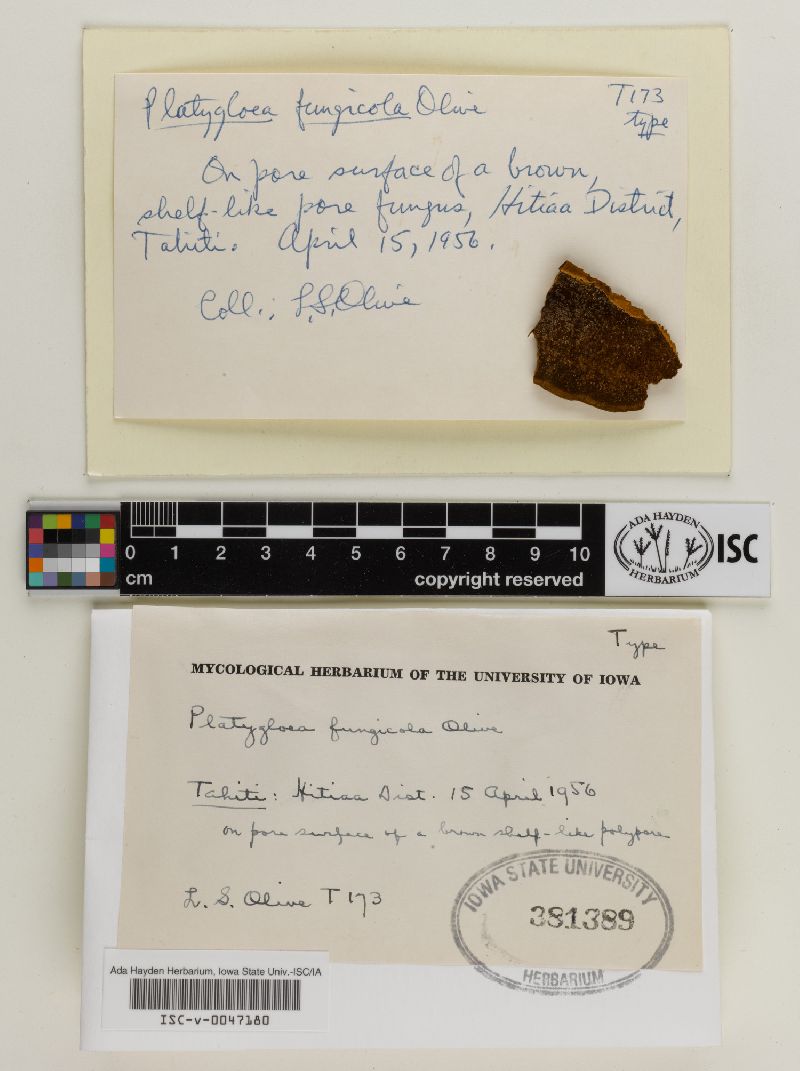 Platygloea fungicola Olive
T173
type
On pore surface of a brown,
shelf-like pore fungus, Hitiaa District,
Tahiti. April 15, 1956.
Coll.: L.S. Olive
0 1 2 3 4 5 6 7 8 9 10
cm copyright reserved
ADA HAYDEN
HERBARIUM
ISC
Type
MYCOLOGICAL HERBARIUM OF THE UNIVERSITY OF IOWA
Platygloea fungicola Olive
Tahiti: Hitiaa Dist. 15 April 1956
on pore surface of a brown shelf-like polypore
L. S. Olive T173
IOWA STATE UNIVERSITY
381389
HERBARIUM
Ada Hayden Herbarium, Iowa State Univ.-ISC/IA
ISC-v-0047180